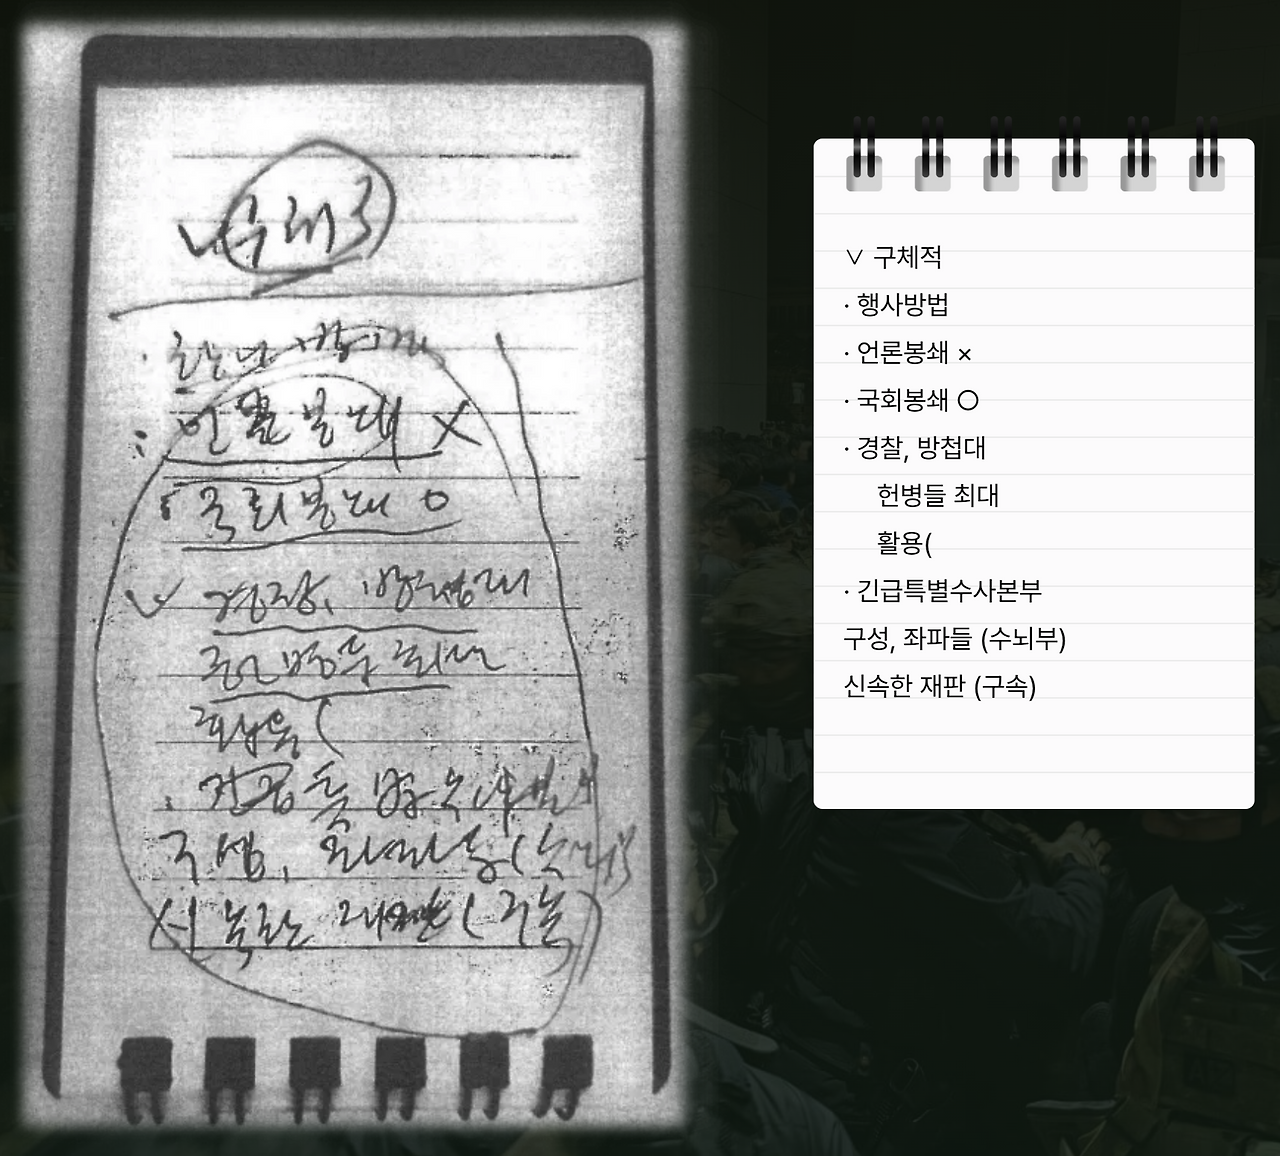 구체적
언론봉쇄 ×
국회봉쇄 ○
경찰, 방첩대
헌병들 최대
활용(
구성, 좌파들 (수뇌부)
신속한 재판 (구속)
∨ 구체적
· 행사방법
· 언론봉쇄 ×
· 국회봉쇄 ○
· 경찰, 방첩대
헌병들 최대
활용(
· 긴급특별수사본부
구성, 좌파들 (수뇌부)
신속한 재판 (구속)